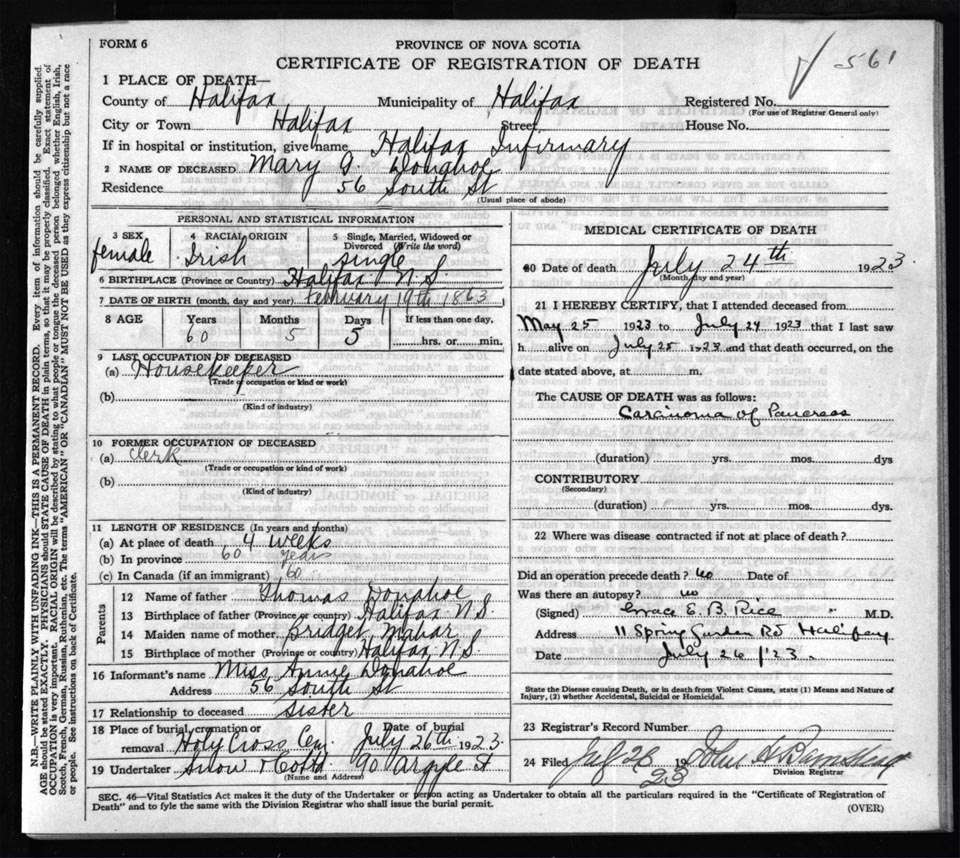 FORM 6
PROVINCE OF NOVA SCOTIA
561
CERTIFICATE OF REGISTRATION OF DEATH
1 PLACE OF DEATH—
County of Halifax Municipality of Halifax Registered No.
(For use of Registrar General only)
City or Town Halifax Street House No.
If in hospital or institution, give name Halifax Infirmary
2 NAME OF DECEASED Mary J. Donahoe
Residence 56 South St
(Usual place of abode)
PERSONAL AND STATISTICAL INFORMATION
3 SEX 4 RACIAL ORIGIN 5 Single, Married, Widowed or Divorced (Write the word)
female Irish single
6 BIRTHPLACE (Province or Country) Halifax N.S.
7 DATE OF BIRTH (month, day and year) February 19th 1863
8 AGE Years Months Days If less than one day,
60 5 5 hrs. or min.
9 LAST OCCUPATION OF DECEASED
(a) Housekeeper
(Trade or occupation or kind or work)
(b)
(Kind of industry)
10 FORMER OCCUPATION OF DECEASED
(a) Clerk
(Trade or occupation or kind of work)
(b)
(Kind of industry)
11 LENGTH OF RESIDENCE (In years and months)
(a) At place of death 4 weeks
(b) In province 60 years
(c) In Canada (if an immigrant) 60
Parents
12 Name of father Thomas Donahoe
13 Birthplace of father (Province or country) Halifax N.S.
14 Maiden name of mother Bridget Mahar
15 Birthplace of mother (Province or country) Halifax N.S.
16 Informant's name Miss Annie Donahoe
Address 56 South St
17 Relationship to deceased Sister
18 Place of burial, cremation or removal Holy Cross Cem Date of burial July 26th 1923.
19 Undertaker Snow & Co Ltd 90 Argyle St
(Name and Address)
MEDICAL CERTIFICATE OF DEATH
20 Date of death July 24th 1923
(Month, day and year)
21 I HEREBY CERTIFY, that I attended deceased from
May 25 1923 to July 24 1923 that I last saw
h alive on July 25 1923 and that death occurred, on the
date stated above, at m.
The CAUSE OF DEATH was as follows:
Carcinoma of Pancreas
(duration) yrs. mos. dys
CONTRIBUTORY
(Secondary)
(duration) yrs. mos. dys.
22 Where was disease contracted if not at place of death?
Did an operation precede death? no Date of
Was there an autopsy? no
(Signed) Grace E. B. Rice M.D.
Address 11 Spring Garden Rd Halifax
Date July 26 1'23.
State the Disease causing Death, or in death from Violent Causes, state (1) Means and Nature of Injury, (2) whether Accidental, Suicidal or Homicidal.
23 Registrar's Record Number
24 Filed 19 John
23
Division Registrar
SEC. 46—Vital Statistics Act makes it the duty of the Undertaker or person acting as Undertaker to obtain all the particulars required in the "Certificate of Registration of
Death" and to fyle the same with the Division Registrar who shall issue the burial permit.
(OVER)
N.B.—WRITE PLAINLY WITH UNFADING INK—THIS IS A PERMANENT RECORD. Every item of information should be carefully supplied.
AGE should be stated EXACTLY. PHYSICIANS should STATE CAUSE OF DEATH in plain terms, so that it may be properly classified. Exact statement of
OCCUPATION is very important. RACIAL ORIGIN will be described by stating to what people or tongue the deceased person belonged whether English, Irish,
Scotch, French, German, Russian, Ruthenian, etc. The terms "AMERICAN" OR "CANADIAN" MUST NOT BE USED as they express citizenship but not a race
or people. See instructions on back of Certificate.